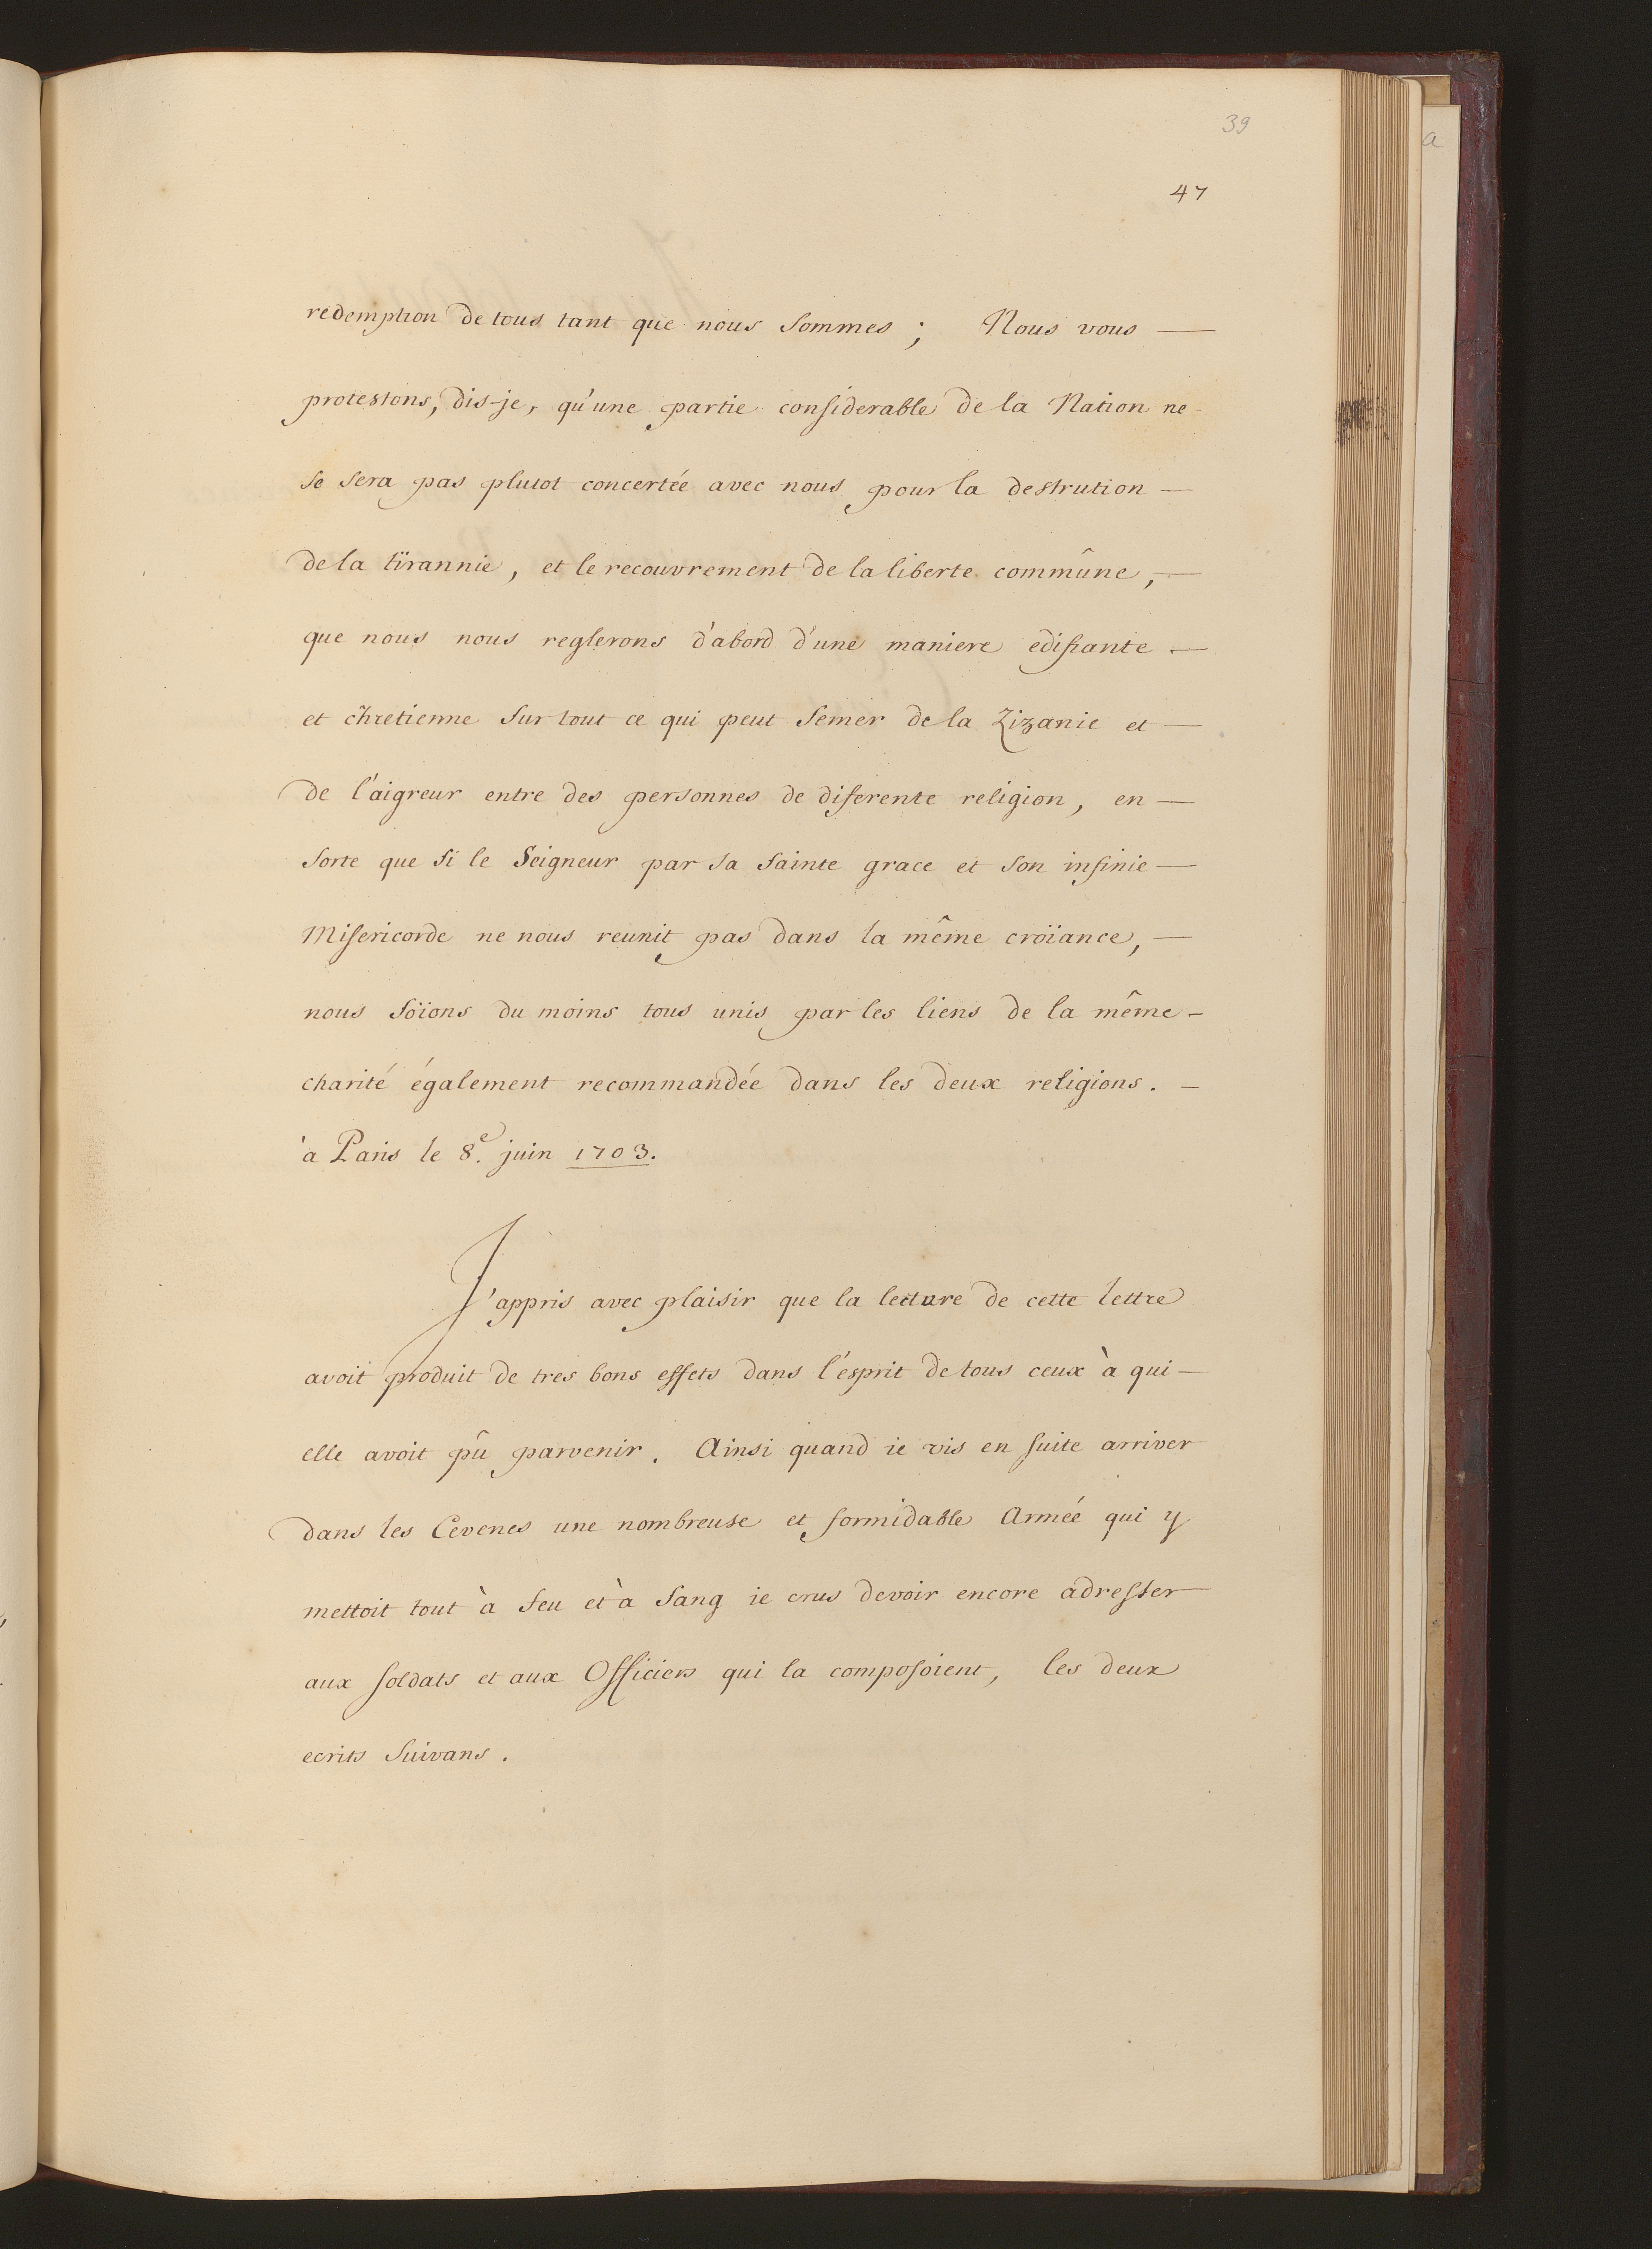 39
a
47
redemption de tous tant que nous sommes ; Nous vous —
protestons, dis-je, qu'une partie considerable de la Nation ne -
se sera pas plutot concertée avec nous pour la destrution —
de la tïrannie, et le recouvrement de la liberte commûne, —
que nous nous reglerons d'abord d'une maniere edifiante —
et chretienne sur tout ce qui peut semer de la Zizanie et —
de l'aigreur entre des personnes de diferente religion, en —
sorte que si le Seigneur par sa sainte grace et son infinie —
Misericorde ne nous reunit pas dans la même croïance, —
nous soïons du moins tous unis par les liens de la même -
charité également recommandée dans les deux religions. -
à Paris le 8.e juin 1703.
J'appris avec plaisir que la lecture de cette lettre
avoit produit de tres bons effets dans l'esprit de tous ceux à qui —
elle avoit pû parvenir. Ainsi quand ie vis en suite arriver
dans les Cevenes une nombreuse et formidable Armée qui y
mettoit tout à feu et à sang ie crus devoir encore adresser
aux soldats et aux Officiers qui la composoient, les deux
ecrits suivans.